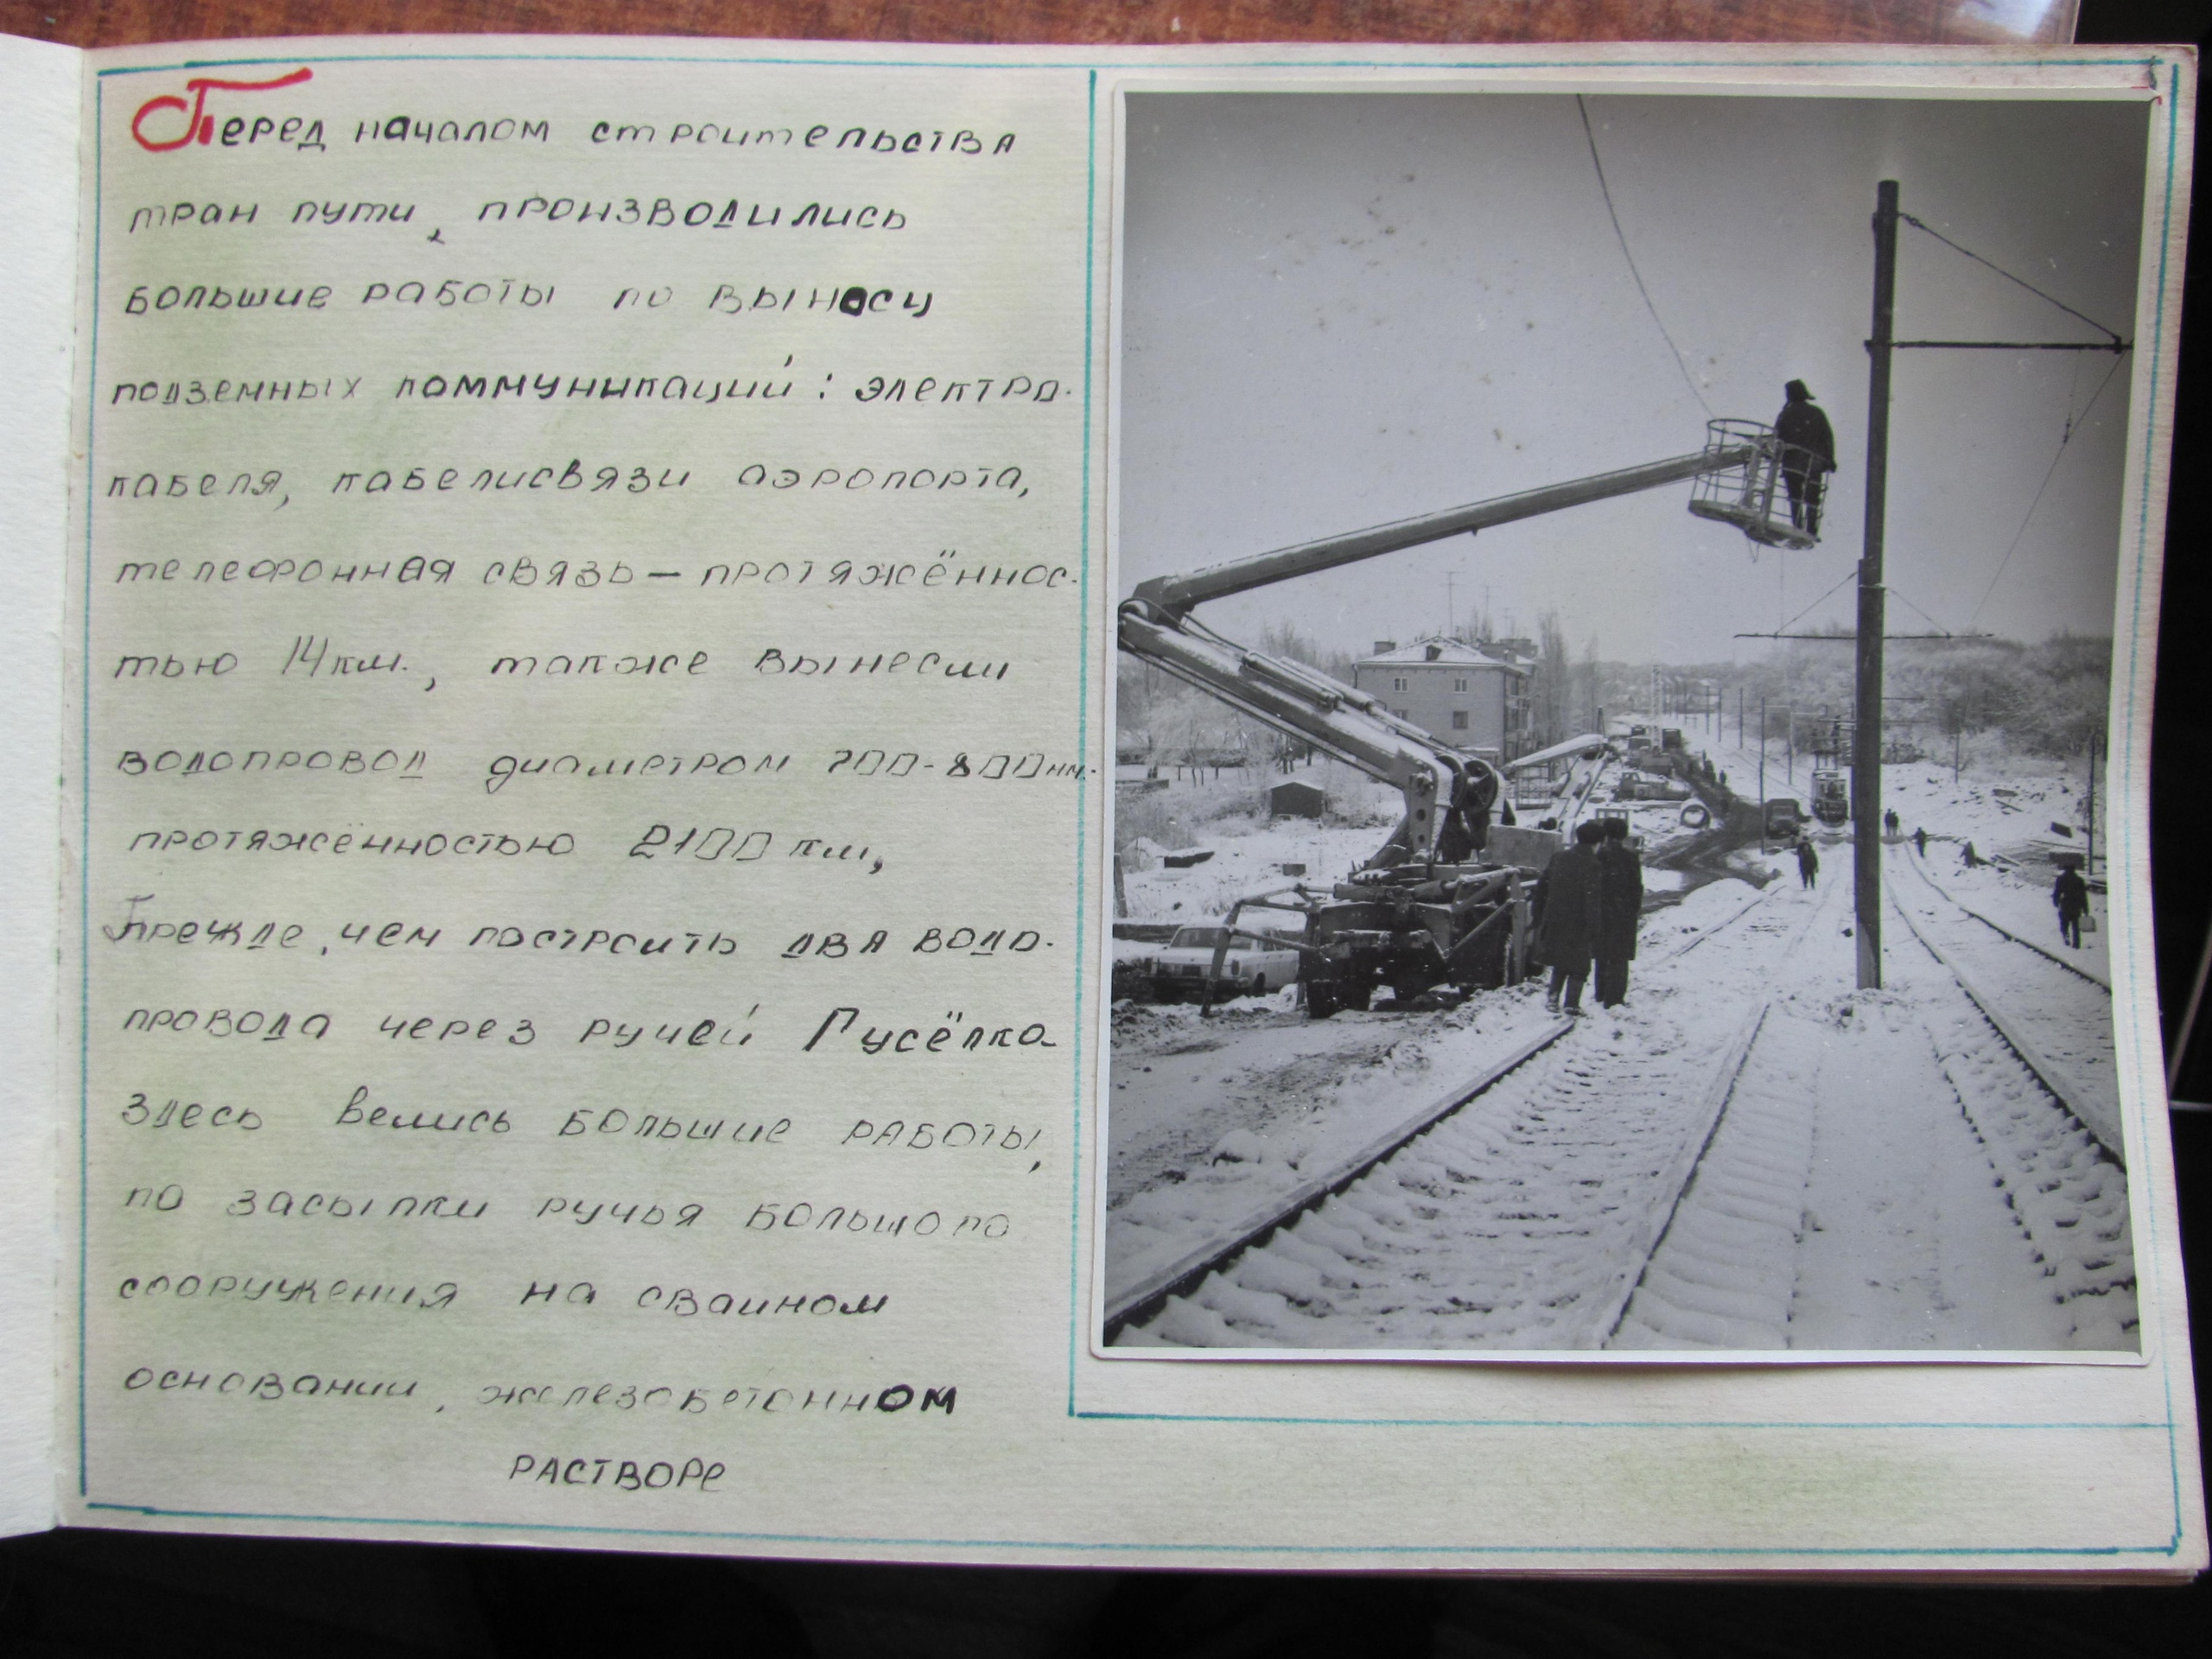 Перед началом строительства
тран пути, производились
большие работы по выносу
подземных коммуникаций: электро-
кабеля, кабелисвязи аэропорта,
телефонная связь – протяжённос-
тью 14 км., также вынесли
водопровод диаметром 700-800мм.
протяжённостью 2100 км,
Прежде, чем построить два водо-
провода через ручей Гусёлка
здесь велись большие работы,
по засыпки ручья большого
сооружения на сваином
основании, железобетонном
растворе